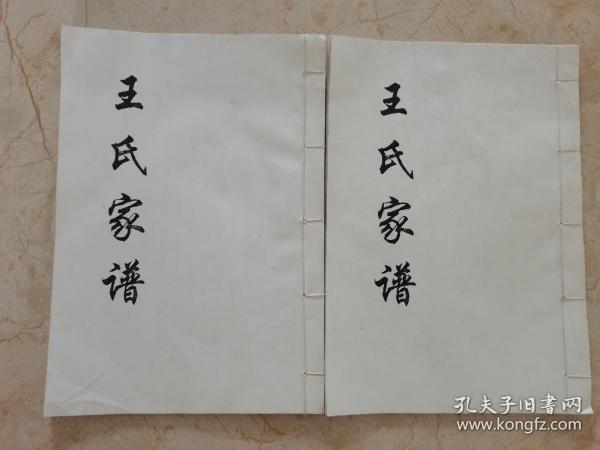 王氏家谱
王氏家谱
孔夫子旧书网
www.kongfz.com